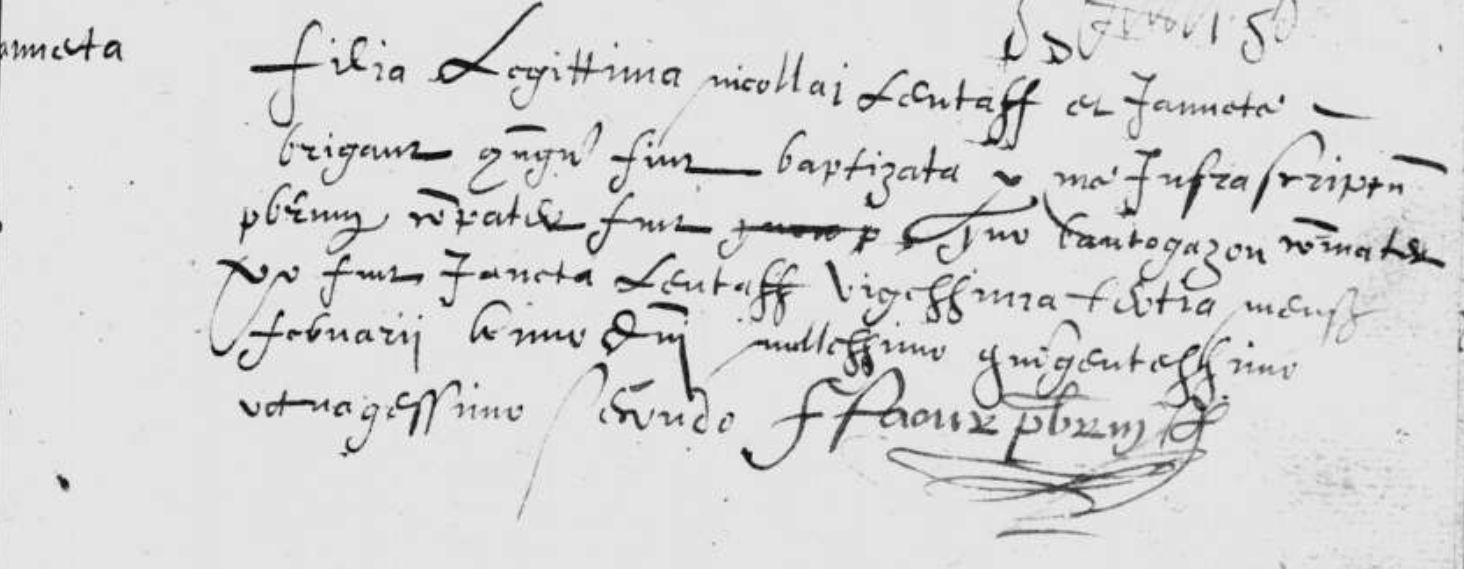 Janneta
filia Legittima nicollai Lentaff et Jannete
brigant fuit baptizata me Infrascriptu
pbrum compater fuit Yuo Cantogazon comater
vo fuit Janeta Lentaff vigessima tertia mensis
febuarii Anno Dni millessimo quigentessimo
octuagessimo secondo pbrum